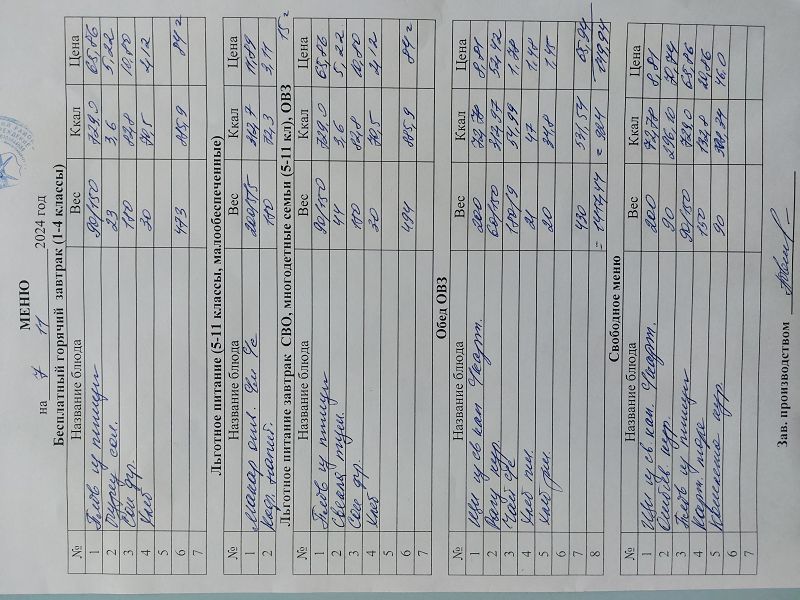 МЕНЮ
на 7 11 2024 год
Бесплатный горячий завтрак (1-4 классы)
№ Название блюда Вес Ккал Цена
1 Плов из птицы 90/150 729,0 63,86
2 Огурец сол. 23 3,6 5,22
3 Сок фр. 180 82,8 10,80
4 Хлеб 30 70,5 4,12
5
6 473 885,9 84=
7
Льготное питание (5-11 классы, малообеспеченные)
№ Название блюда Вес Ккал Цена
1 Макар отв. 200/5/5 312,7 11,89
2 Коф. напит. 180 72,3 3,11
15=
Льготное питание завтрак СВО, многодетные семьи (5-11 кл), ОВЗ
№ Название блюда Вес Ккал Цена
1 Плов из птицы 90/150 729,0 63,86
2 Свекла туш. 44 3,6 5,22
3 Сок фр. 180 82,8 10,80
4 Хлеб 30 70,5 4,12
5
6 494 885,9 84=
7
Обед ОВЗ
№ Название блюда Вес Ккал Цена
1 Щи из св кап. с карт. 200 72,78 8,81
2 Рагу кур. 60/150 312,97 52,42
3 Чай с/с 180/9 54,99 1,78
4 Хлеб пш. 21 47 1,48
5 Хлеб рж. 20 34,8 1,45
6
7
8
Свободное меню
№ Название блюда Вес Ккал Цена
1 Щи из св кап. с карт. 200 72,78 8,81
2 90 296,10
3 Плов из птицы 90/150 729,0 63,86
4 Карт. пюре 150 132,8 20,86
5 Котлета кур. 90 46,0
6
7
Зав. производством